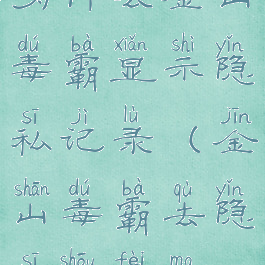 dú bà xiǎn shì yǐn
毒霸显示隐
sī jì lù jīn
私记录(金
shān dú bà qù yǐn
山毒霸去隐
sī shōu fèi ma